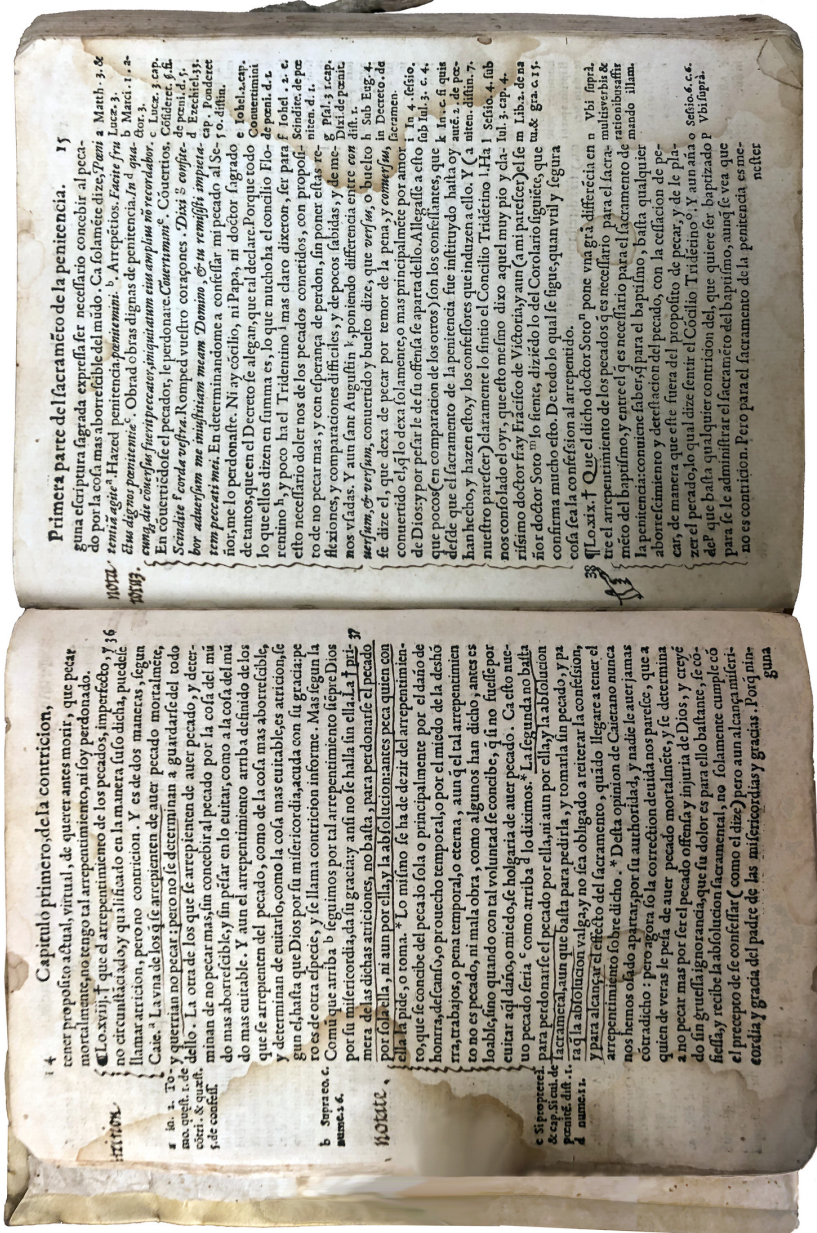 14
Capitulo primero, de la contricion,
tener proposito actual, virtual, de querer antes morir, que pecar
mortalmente, no tengo tal arrepentimiento, ni soy perdonado.
¶Lo.xviij.† que el arrepentimiento de los pecados, imperfecto, y 36
no circunstãciado, y qualificado en la manera suso dicha, puedese
llamar atricion, pero no contricion. Y es de dos maneras, segun
Caie.ª La vna de los q̃ se arrepienten de auer pecado mortalmẽte,
y querrian no pecar: pero no se determinan a guardarse del todo
dello. La otra de los que se arrepienten de auer pecado, y deter-
minan de no pecar mas, sin concebir al pecado por la cosa del mũ
do mas aborrescible, y sin pẽsar en lo euitar, como a la cosa del mũ
do mas euitable. Y aun el arrepentimiento arriba definido de los
que se arrepienten del pecado, como de la cosa mas aborrescible,
y determinan de euitarlo, como la cosa mas euitable, es atricion, se
gun el, hasta que Dios por su misericordia, acuda con su gracia: pe
ro es de otra especie, y se llama contricion informe. Mas segun la
Comũ que arriba b seguimos por tal arrepentimiento siẽpre Dios
por su misericordia, da su gracia: y ansi no se halla sin ella. La † pri- 37
mera de las dichas atriciones, no basta, para perdonarse el pecado
por sola ella, ni aun por ella, y la absolucion: antes peca quien con
ella la pide, o toma. * Lo mismo se ha de dezir del arrepentimien-
to, que se concibe del pecado sola o principalmente por el daño de
honra, descanso, o prouecho temporal, o por el miedo de la deshõ
rra, trabajos, o pena temporal, o eterna, aun q̃ el tal arrepentimien
to no es pecado, ni mala obra, como algunos han dicho, antes es
loable, sino quando con tal voluntad se concibe, q̃ si no fuesse por
euitar aq̃l daño, o miedo, se holgaria de auer pecado. Ca esto nue-
uo pecado seria c como arriba d lo diximos. * La segunda no basta
para perdonarse el pecado por ella, ni aun por ella, y la absolucion
sacramental, aun que basta para pedirla, y tomarla sin pecado, y pa
ra q̃ la absolucion valga, y no sea obligado a reiterar la confesion,
y para alcançar el effecto del sacramento, quãdo llegare a tener el
arrepentimiento sobre dicho. * Desta opinion de Caietano nunca
nos hemos osado apartar, por su authoridad, y nadie le auer jamas
cõtradicho: pero agora so la correction deuida nos paresce, que a
quien de veras le pesa de auer pecado mortalmẽte, y se determina
a no pecar mas por ser el pecado offensa y injuria de Dios, y creyẽ
do sin gruessa ignorancia, que su dolor es para ello bastante, se co-
fiessa, y recibe la absolucion sacramental, no solamente cumple cõ
el precepto de se confessar (como el dize) pero aun alcança miseri-
cordia y gracia del padre de las misericordias y gracias. Porq̃ nin-
guna
a Io. 2. To-
mo. quæst. 1. de
cõtri. & quæst.
5. de confess.
b Supra eo. c.
nume. 26.
notate.
c Si propterei.
& cap. Si cui. de
pœnitẽ. dist. 1.
d nume. 12.
Primera parte del sacramẽto de la penitencia. 15
guna escriptura sagrada expressa ser necessario concebir al peca-
do por la cosa mas aborrescible del mũdo. Ca solamẽte dize, Pœni
temiñ agite ª. Hazed penitencia, pœnitemini. b. Arrepẽtios. Facite fru
ctus dignos pœnitentiæ c. Obrad obras dignas de penitencia. In d qua-
cunq̃, die cõuersus fuerit peccator, iniquitatum eius amplius nõ recordabor.
En cõuertiẽdose el pecador, le perdonare. Cõuertimini e. Conuertios,
Scindite f corda vestra. Romped vuestro coraçones. Dixi g confite-
bor aduersum me iniustitiam meam Domino, & tu remisisti impieta-
tem peccati mei. En determinandome a confessar mi pecado al Se-
ñor, me lo perdonaste. Ni ay cõcilio, ni Papa, ni doctor sagrado
de tantos, que en el Decreto se alegan, que tal declare. Porque todo
lo que ellos dizen en summa es, lo que mucho ha el concilio Flo-
rentino h, y poco ha el Tridentino i mas claro dixeron, ser para
esto necessario doler nos de los pecados cometidos, con proposi-
to de no pecar mas, y con esperança de perdon, sin poner estas re-
flexiones, y comparaciones difficiles, y de pocos sabidas, y de me-
nos vsadas. Y aun sant Augustin k, poniendo differencia entre con
uersum, & versum, conuertido y buelto dize, que versus, o buelto
se dize el, que dexa de pecar por temor de la pena, y conuersus,
conuertido el, q̃ lo dexa solamente, o mas principalmẽte por amor
de Dios: y por pesar le de su offensa se aparta dello. Allegasse a esto
que pocos (en comparacion de los otros) son los confessantes, que
desde que el sacramento de la penitencia fue instituydo hasta oy
han hecho, y hazen esto, y los confessores que induzen a ello. Y (a
nuestro parescer) claramente lo sintio el Concilio Tridẽtino l. Ha
nos consolado el oyr, que esto mesmo dixo aquel muy pio y cla-
rissimo doctor fray Frãcisco de Victoria, y aun (a mi parescer) el se
ñor doctor Soto m lo siente, diziẽdo lo del Corolario siguiẽte, que
confirma mucho esto. De todo lo qual se sigue, quan vtil y segura
cosa sea la confession al arrepentido.
38 ¶Lo.xix.† Que el dicho doctor Soto n pone vna grã differẽcia en
tre el arrepentimiento de los pecados q̃ es necessario para el sacra-
mẽto del baptismo, y entre el q̃ es necessario para el sacramento de
la penitencia: conuiene saber, q̃ para el baptismo, basta qualquier
aborrescimiento y detestacion del pecado, con la cessacion de pe-
car, de manera que este fuera del proposito de pecar, y de le pla-
zer el pecado, lo qual dize sentir el Cõcilio Tridẽtino o, Y aun aña
de p que basta qualquier contricion del, que quiere ser baptizado
para se le administrar el sacramẽto del baptismo, aunq̃ se vea que
no es contricion. Pero para el sacramento de la penitencia es me-
nester
nota
a Matth. 3. &
Lucæ. 3.
b Marci. 1. a-
ctor. 3.
c Lucæ. 3. cap.
Cõsideret. §. fi.
de peni. d. 5.
d Ezechiel, 33.
cap. Ponderet
50. distin.
e Iohel. 2. cap.
Conuertimini
de pœni. d. 1.
f Iohel. 2. c.
Scindite. de pœ
niten. d. 1.
g Psal. 31. cap.
Dixi. de pœnit.
dist. 1.
h Sub Eug. 4.
in Decreto. de
sacramen.
i In 4. sessio.
sub Iul. 3. c. 4.
k In. c. si quis
autẽ. 2. de pœ-
niten. distin. 7.
l Sessio. 4. sub
Iul. 3. cap. 4.
m Lib. 2. de na
tu. & gra. c. 15.
n Vbi suprà.
multis verbis &
rationibus affir
mando illam.
o Sessio. 6. c. 6.
p Vbi suprà.